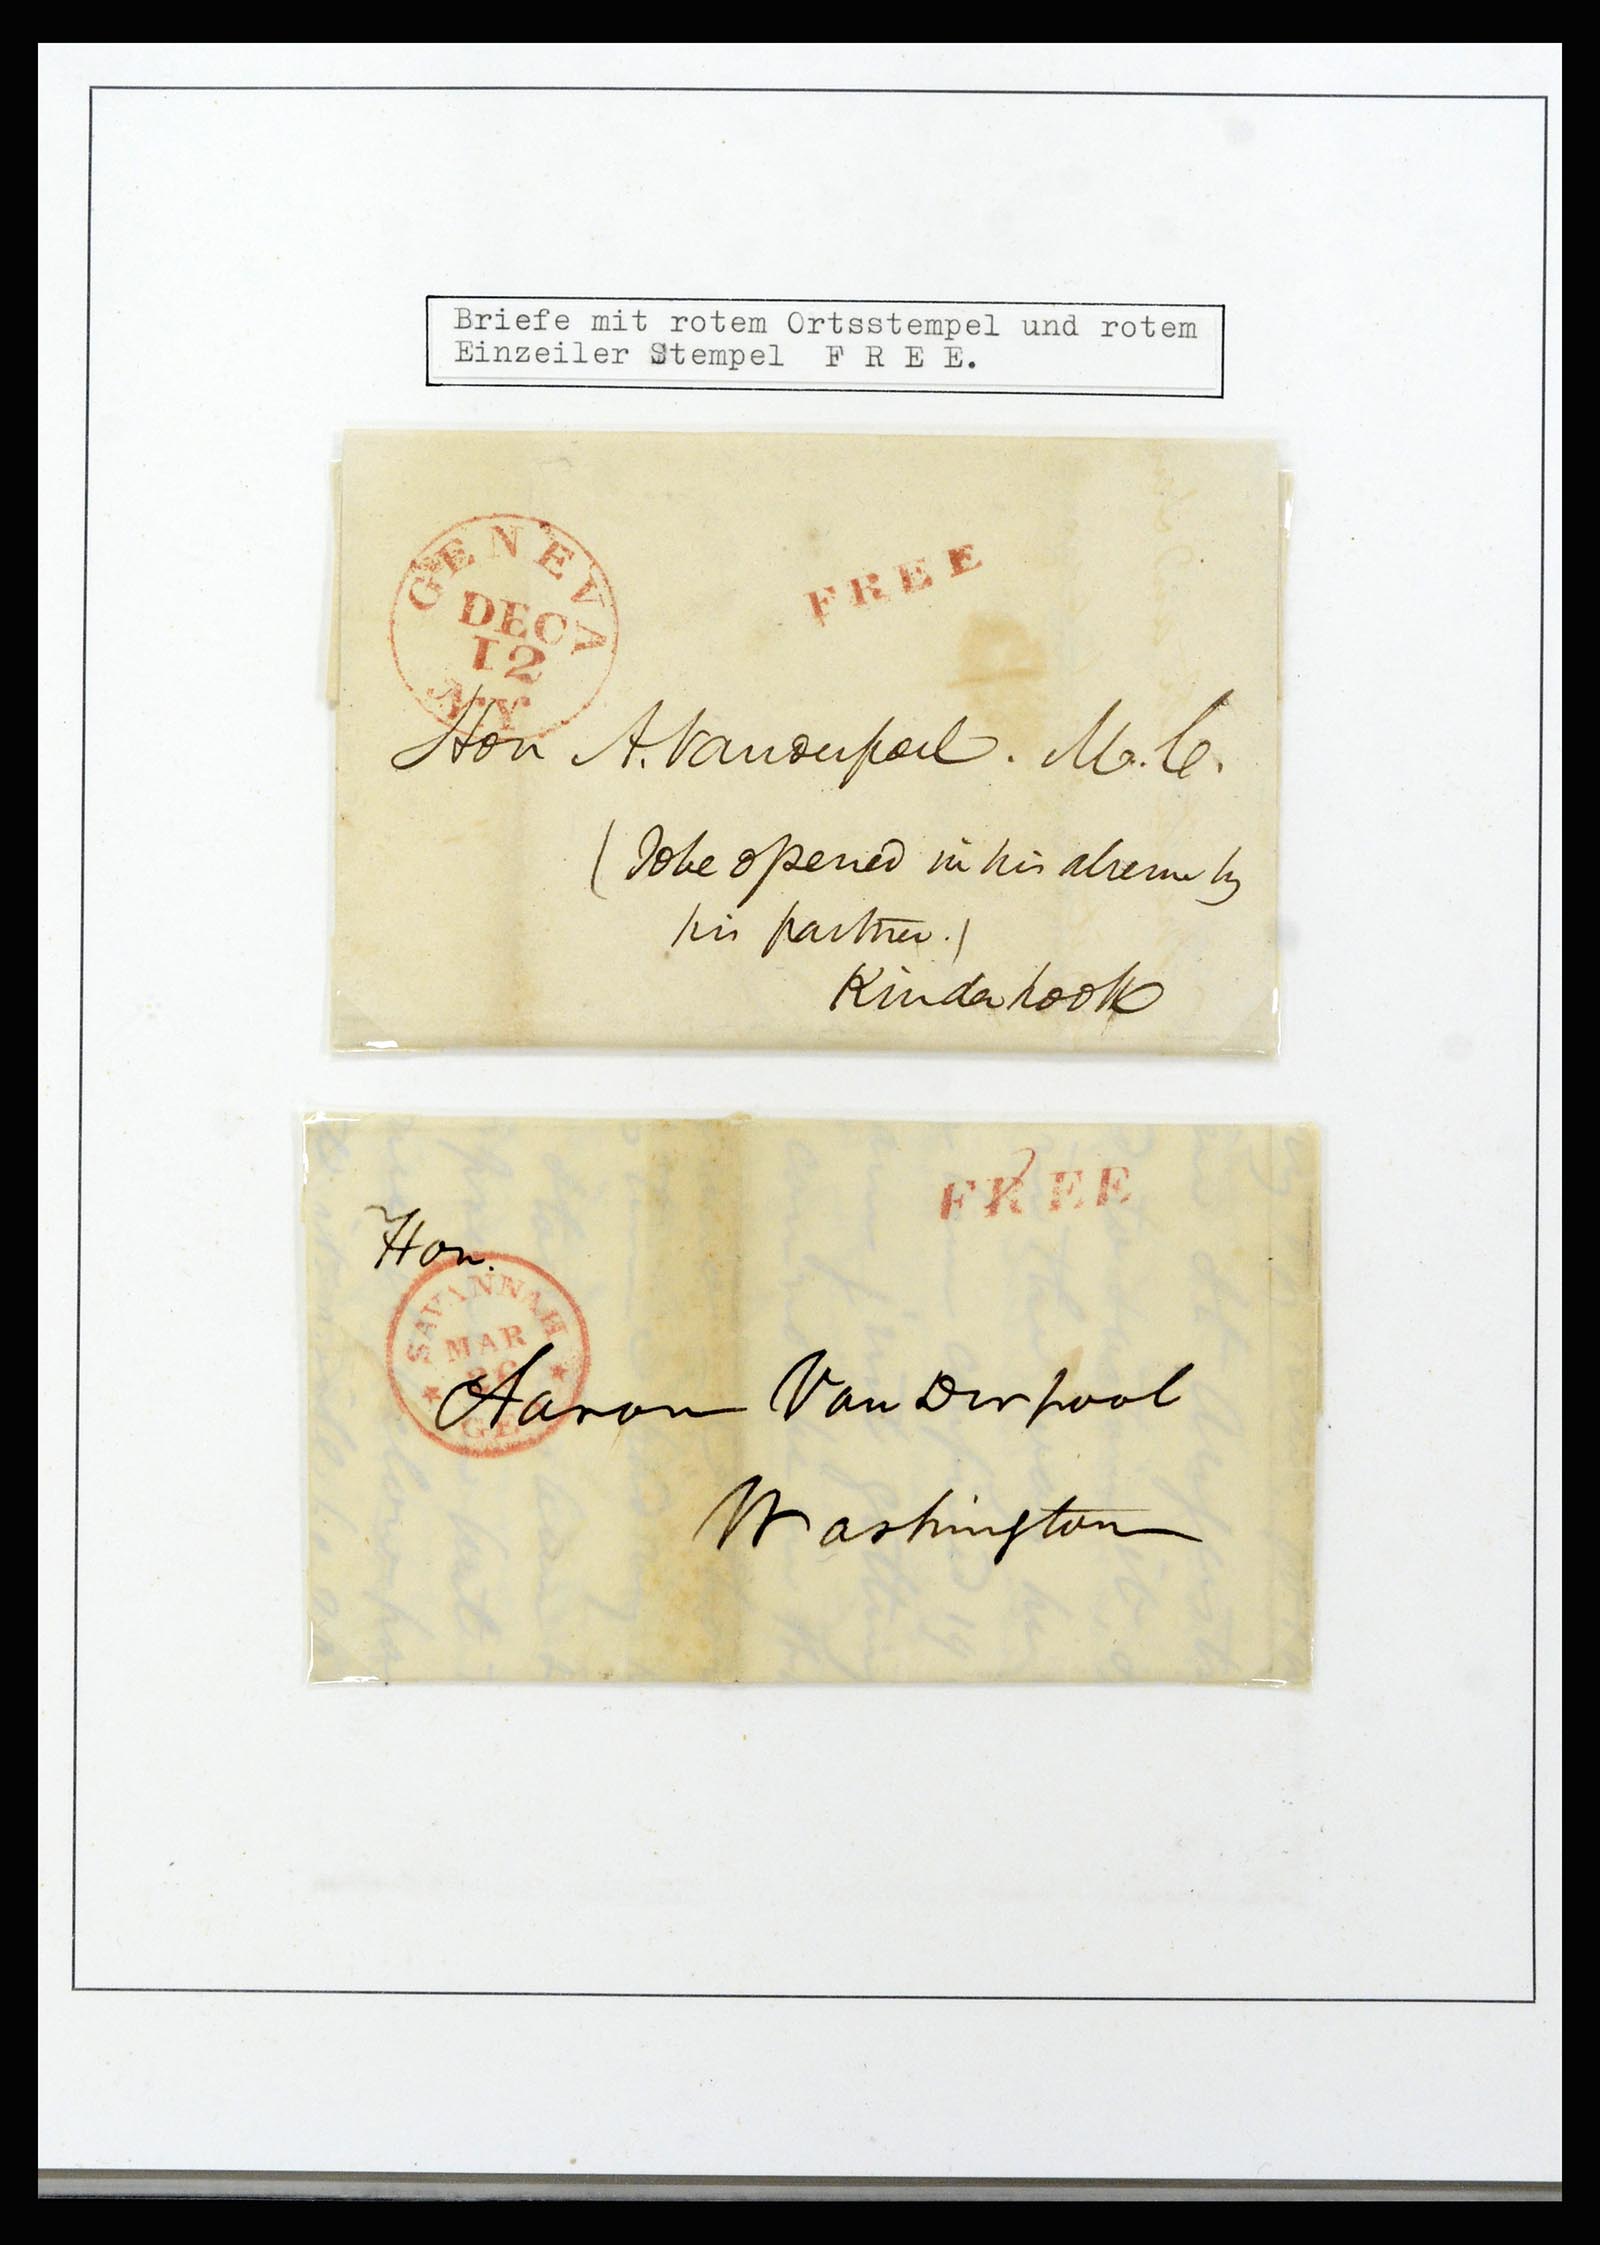 Briefe mit rotem Ortsstempel und rotem
Einzeiler Stempel F R E E.
GENEVA
DEC
12
N.Y
FREE
Hon A. Vanderpoel. M.C.
(To be opened in his absence by
his partner.)
Kinderhook
FREE
Hon.
SAVANNAH
MAR
GE
Aaron VanDerpool
Washington